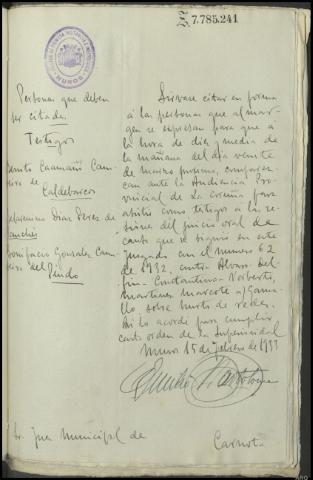 Z.7.785.241
JUZGADO DE PRIMERA INSTANCIA E INSTRUCCION
MUROS
Personas que deben
ser citadas
Testigos
Benito Caamaño Cam-
de
Caldebarcos
Esperanza Dias Peres de
Bonifacio Gonzales Cam-
del Pindo
Sirvase citar en forma
á las personas que al mar-
gen se expresan para que a
la hora de diez y media de
la mañana del dia veinte
de Marzo proximo, comparez-
can ante la Audiencia Pro-
vincial de La Coruña para
asistir como testigos a la se-
siones del juicio oral de
causa que se siguió en este
Juzgado con el numero 62
de 1932, contra Alvaro Del-
fin Constantino Norberto,
Martinez Marcote y Gama-
llo, sobre hurto de redes.
Asi lo acordé para cumplir
carta orden de la Superioridad
Muros 15 de Febrero de 1933
Sr. Juez Municipal de
Carnota